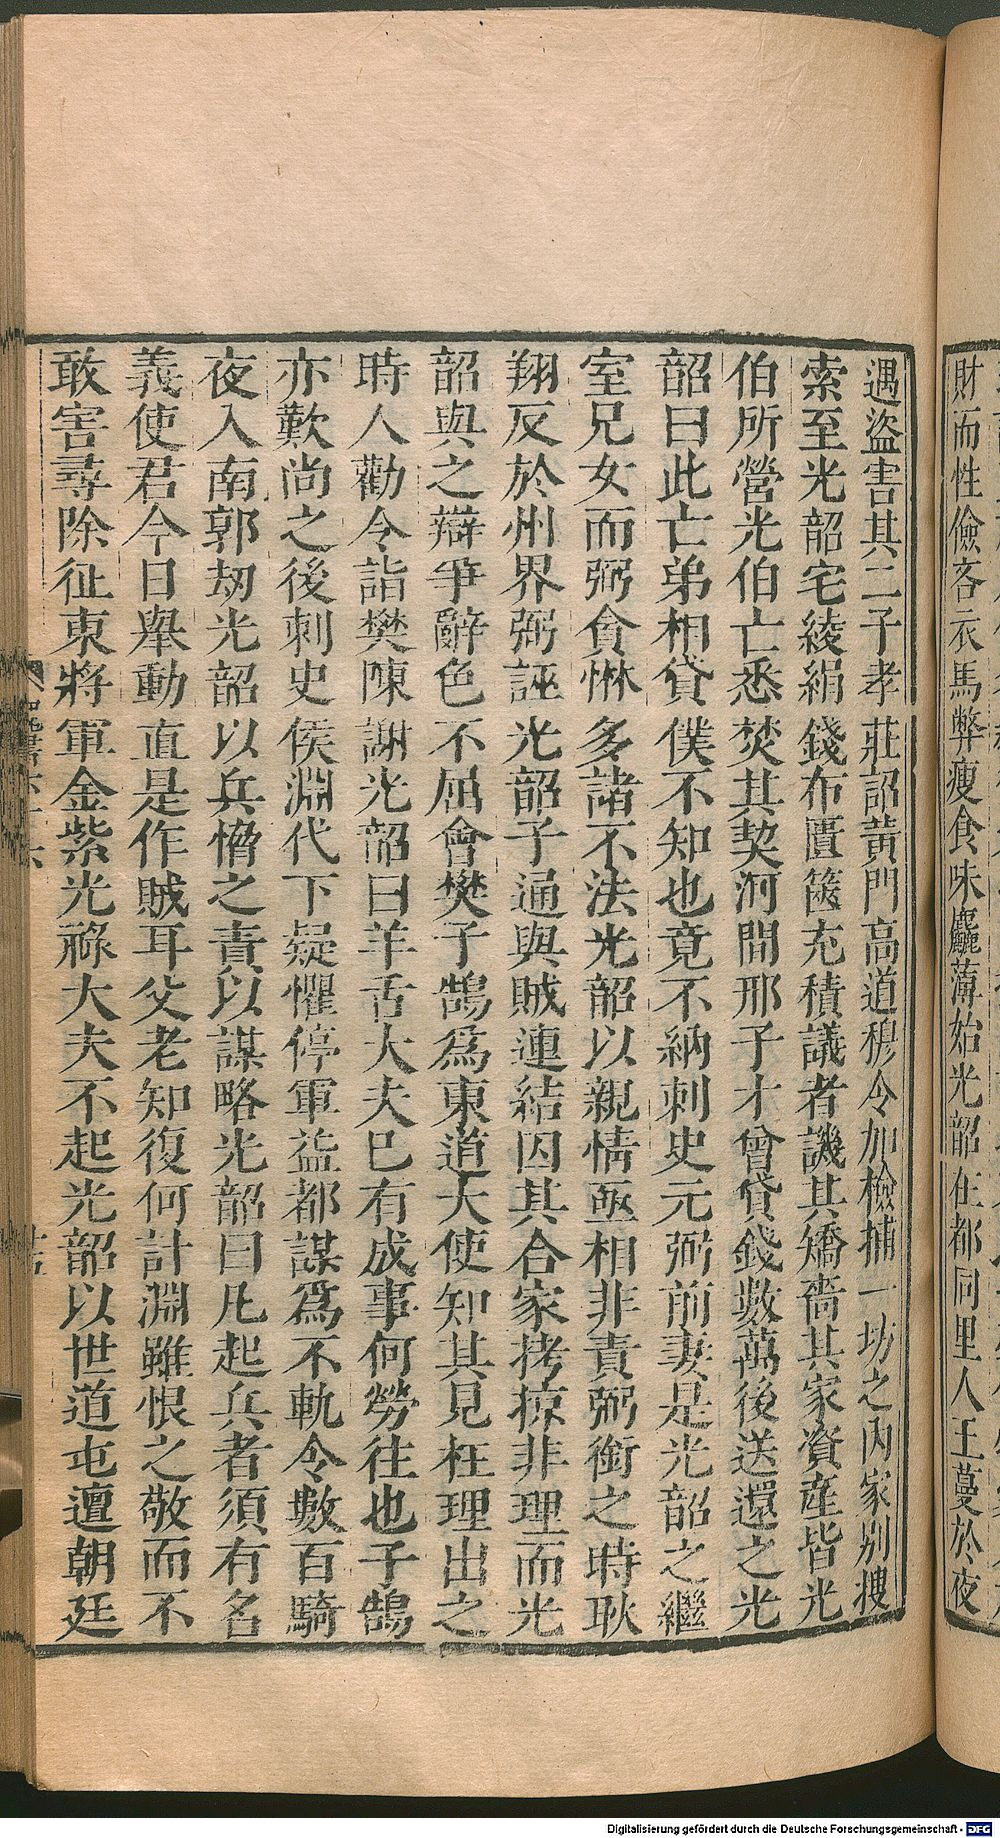 財而性儉吝衣馬弊瘦食味麤薄始光韶在都同里人王蔓於夜
遇盜害其二子孝莊詔黃門高道穆令加檢捕一坊之內家別搜
索至光韶宅綾絹錢布匱篋充積議者譏其矯嗇其家資產皆光
伯所營光伯亡悉焚其契河間邢子才曾貸錢數萬後送還之光
韶曰此亡弟相貸僕不知也竟不納刺史元弼前妻是光韶之繼
室兄女而弼貪惏多諸不法光韶以親情亟相非責弼銜之時耿
翔反於州界弼誣光韶子通與賊連結囚其合家拷掠非理而光
韶與之辯爭辭色不屈會樊子鵠為東道大使知其見枉理出之
時人勸令詣樊陳謝光韶曰羊舌大夫已有成事何勞往也子鵠
亦歎尚之後刺史侯淵代下疑懼停軍益都謀為不軌令數百騎
夜入南郭劫光韶以兵脅之責以謀略光韶曰凡起兵者須有名
義使君今日舉動直是作賊耳父老知復何計淵雖恨之敬而不
敢害尋除征東將軍金紫光祿大夫不起光韶以世道屯邅朝廷
Digitalisierung gefördert durch die Deutsche Forschungsgemeinschaft - DFG